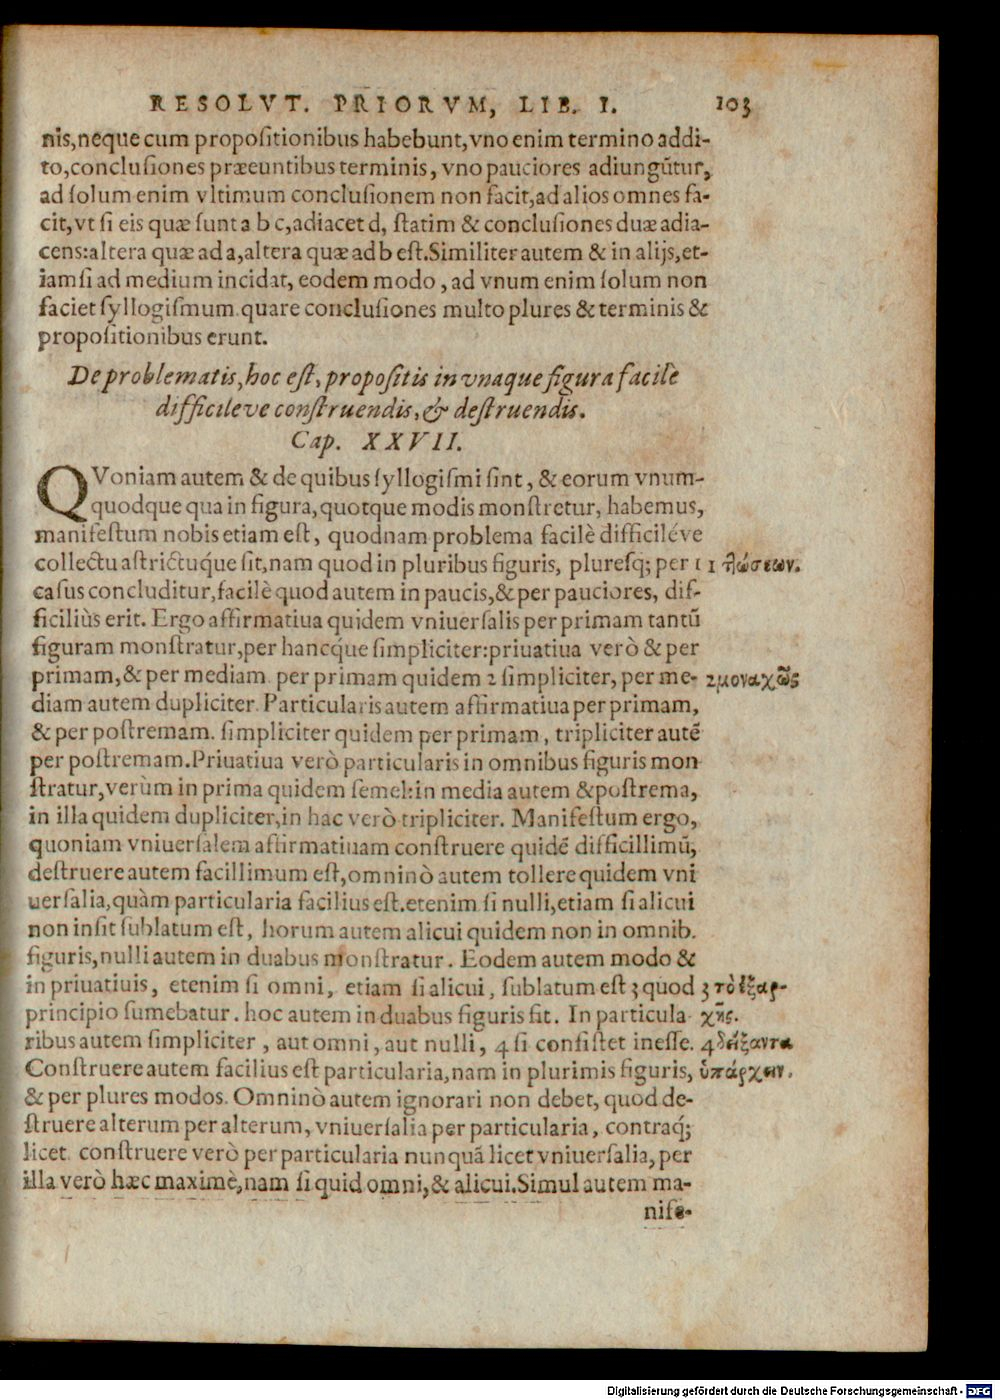 RESOLVT. PRIORVM, LIB. I. 103
nis, neque cum propositionibus habebunt, vno enim termino addi-
to, conclusiones præeuntibus terminis, vno pauciores adiungũtur,
ad solum enim vltimum conclusionem non facit, ad alios omnes fa-
cit, vt si eis quæ sunt a b c, adiacet d, statim & conclusiones duæ adia-
cens: altera quæ ad a, altera quæ ad b est. Similiter autem & in alijs, et-
iam si ad medium incidat, eodem modo, ad vnum enim solum non
faciet syllogismum. quare conclusiones multo plures & terminis &
propositionibus erunt.
De problematis, hoc est, propositis in vnaque figura facile
difficileve construendis, & destruendis.
Cap. XXVII.
QVoniam autem & de quibus syllogismi sint, & eorum vnum-
quodque qua in figura, quotque modis monstretur, habemus,
manifestum nobis etiam est, quodnam problema facilè difficiléve
collectu astrictuq́ue sit, nam quod in pluribus figuris, pluresq; per 1 1 πτώσεων.
casus concluditur, facilè quod autem in paucis, & per pauciores, dif-
ficiliùs erit. Ergo affirmatiua quidem vniuersalis per primam tantũ
figuram monstratur, per hancq́ue simpliciter: priuatiua verò & per
primam, & per mediam. per primam quidem 2 simpliciter, per me- 2 μοναχῶς
diam autem dupliciter. Particularis autem affirmatiua per primam,
& per postremam. simpliciter quidem per primam, tripliciter autẽ
per postremam. Priuatiua verò particularis in omnibus figuris mon
stratur, verùm in prima quidem semel: in media autem & postrema,
in illa quidem dupliciter, in hac verò tripliciter. Manifestum ergo,
quoniam vniuersalem affirmatiuam construere quidẽ difficillimũ,
destruere autem facillimum est, omninò autem tollere quidem vni
uersalia, quàm particularia facilius est. etenim si nulli, etiam si alicui
non insit sublatum est, horum autem alicui quidem non in omnib.
figuris, nulli autem in duabus monstratur. Eodem autem modo &
in priuatiuis, etenim si omni, etiam si alicui, sublatum est 3 quod 3 τὸ ἐξαρ-
principio sumebatur. hoc autem in duabus figuris fit. In particula- χῆς.
ribus autem simpliciter, aut omni, aut nulli, 4 si consistet inesse. 4 δείξαντα
Construere autem facilius est particularia, nam in plurimis figuris, ὑπάρχειν.
& per plures modos. Omninò autem ignorari non debet, quod de-
struere alterum per alterum, vniuersalia per particularia, contraq́;
licet. construere verò per particularia nunquã licet vniuersalia, per
illa verò hæc maximè, nam si quid omni, & alicui. Simul autem ma-
nife-
Digitalisierung gefördert durch die Deutsche Forschungsgemeinschaft - DFG